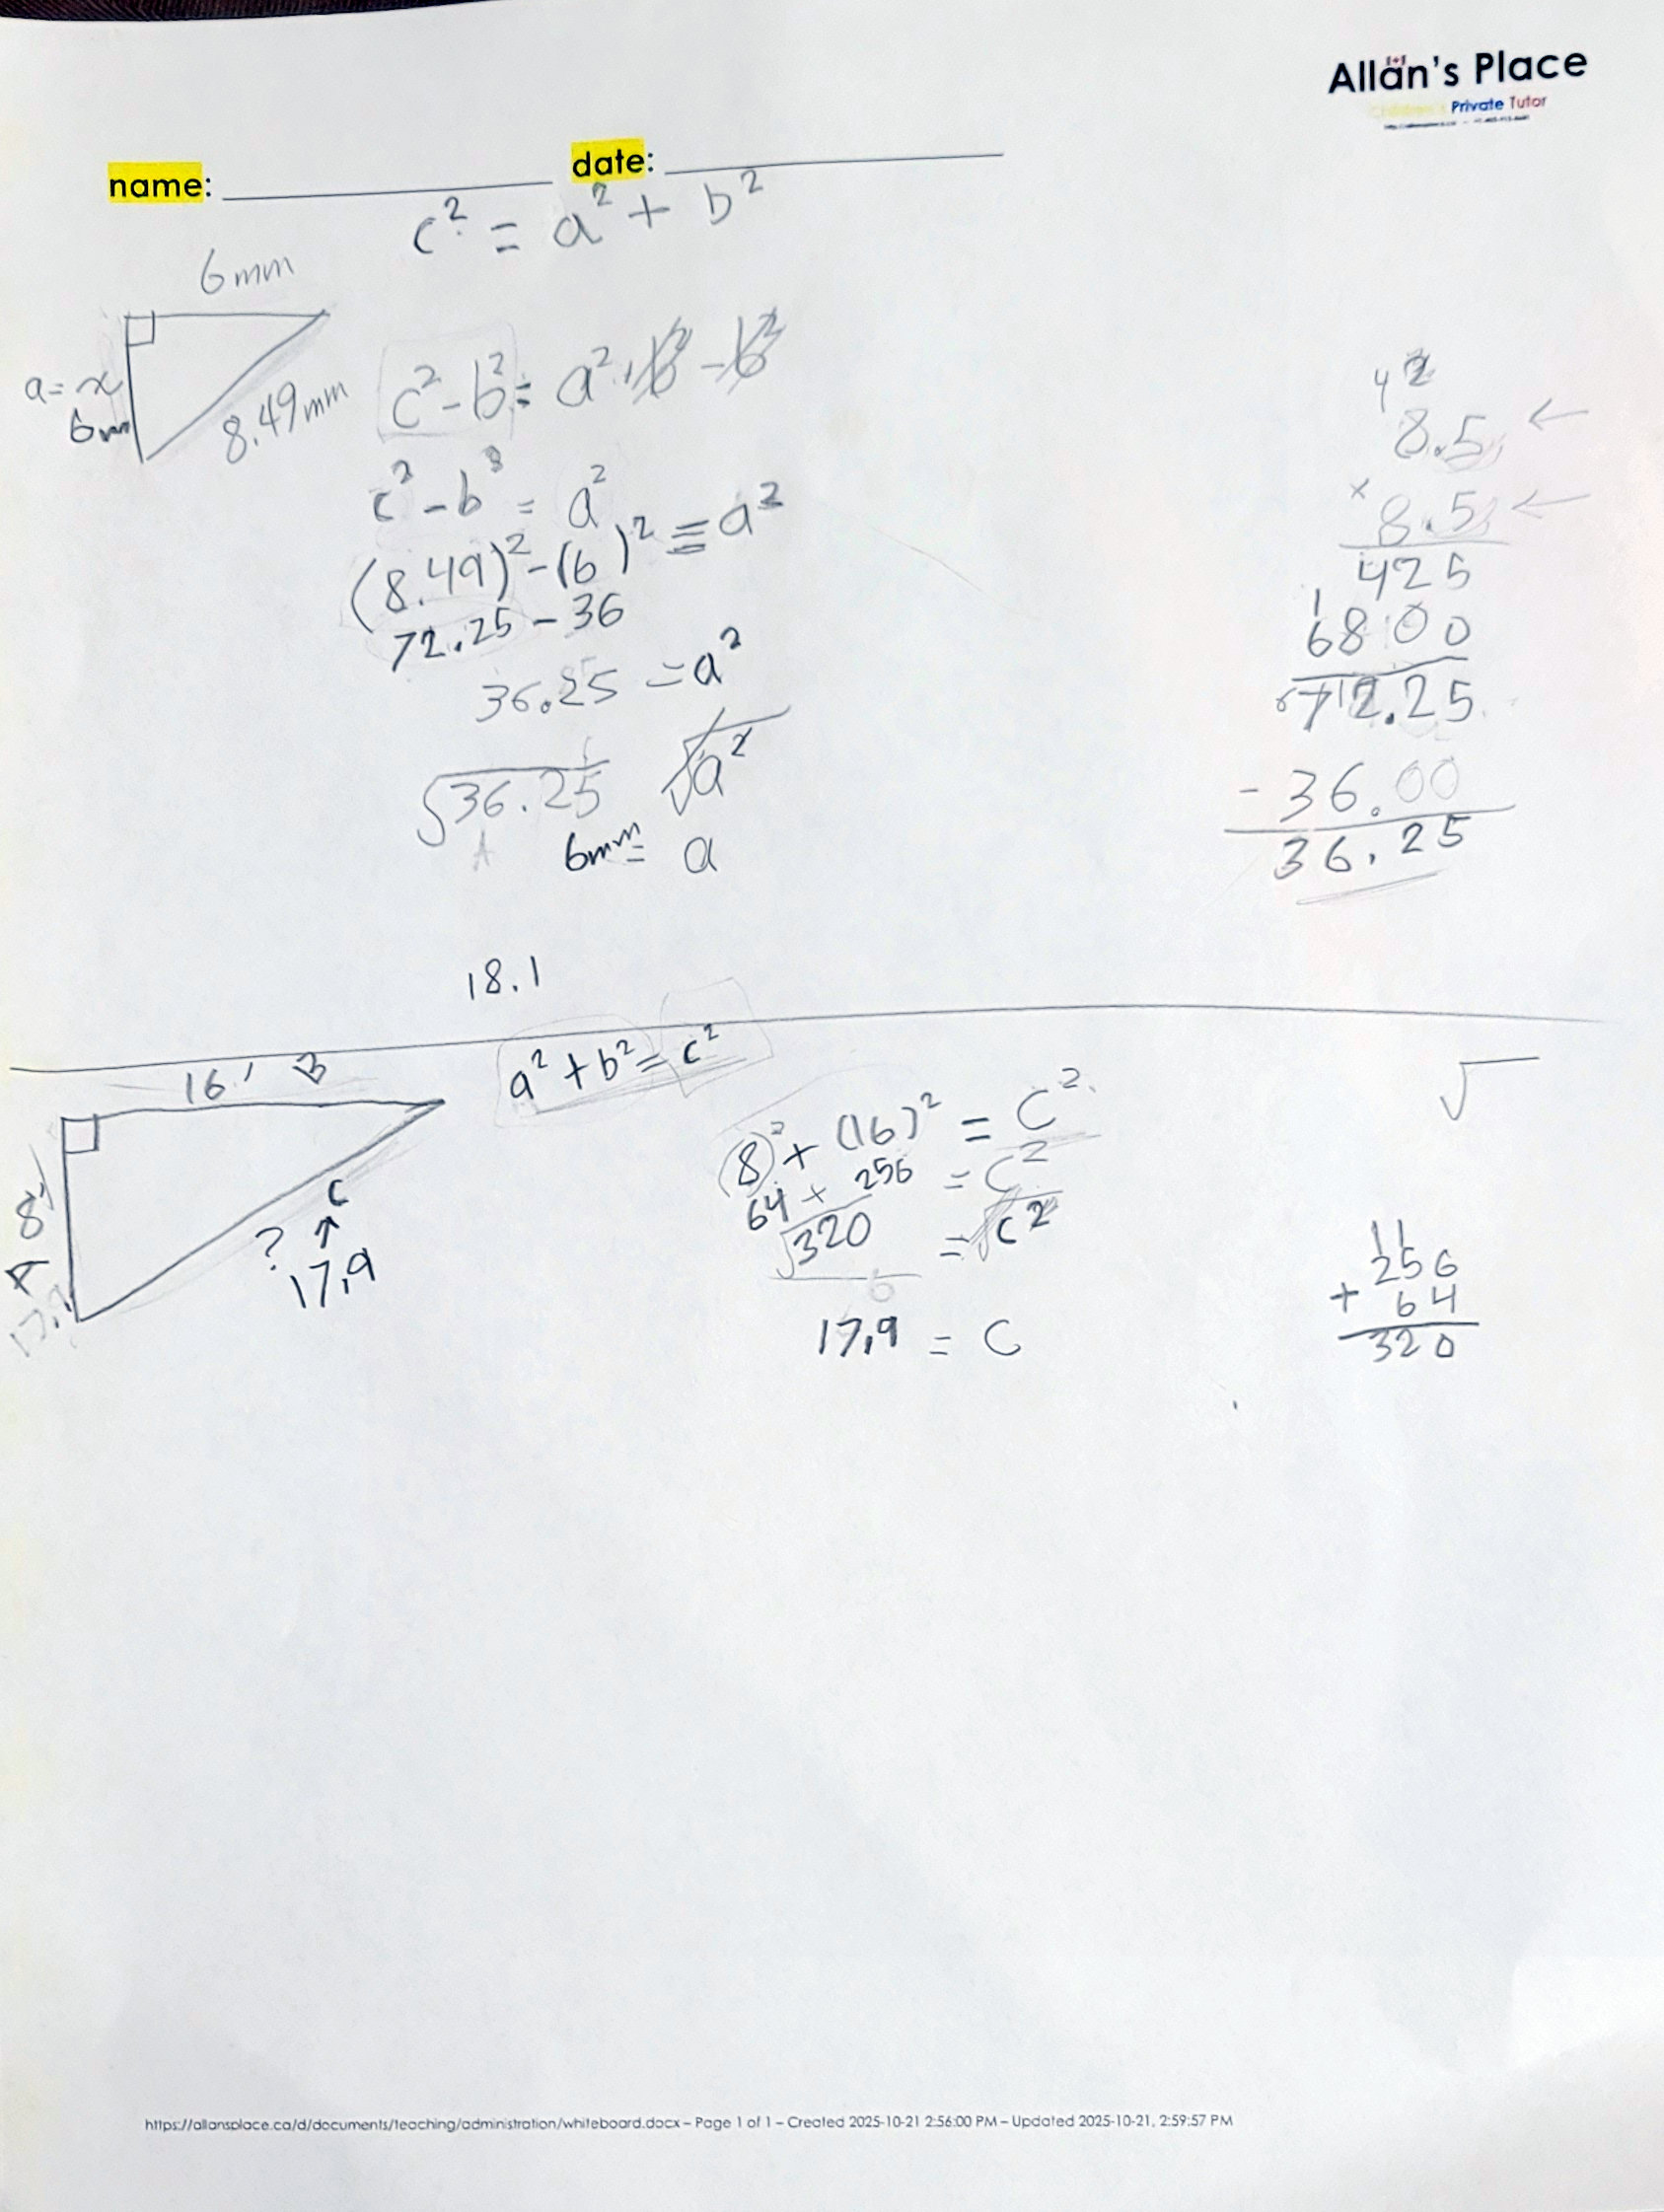 Allan's Place
Children's Private Tutor
name: date:
c² = a² + b²
6mm
a = x
6mm
8.49mm
c² - b² = a² + b² - b²
c² - b² = a²
(8.49)² - (6)² = a²
72.25 - 36
36.25 = a²
√36.25 √a²
6mm = a
4 2
8.5 ←
× 8.5 ←
425
1
6800
72.25
- 36.00
36.25
18.1
16' B
a² + b² = c²
A 8'
17,9
? ↑ C
17,9
(8)² + (16)² = C²
64 + 256 = C²
√320 = √c²
17,9 = C
√
11
256
+ 64
320
https://allansplace.ca/d/documents/teaching/administration/whiteboard.docx – Page 1 of 1 – Created 2025-10-21 2:56:00 PM – Updated 2025-10-21, 2:59:57 PM